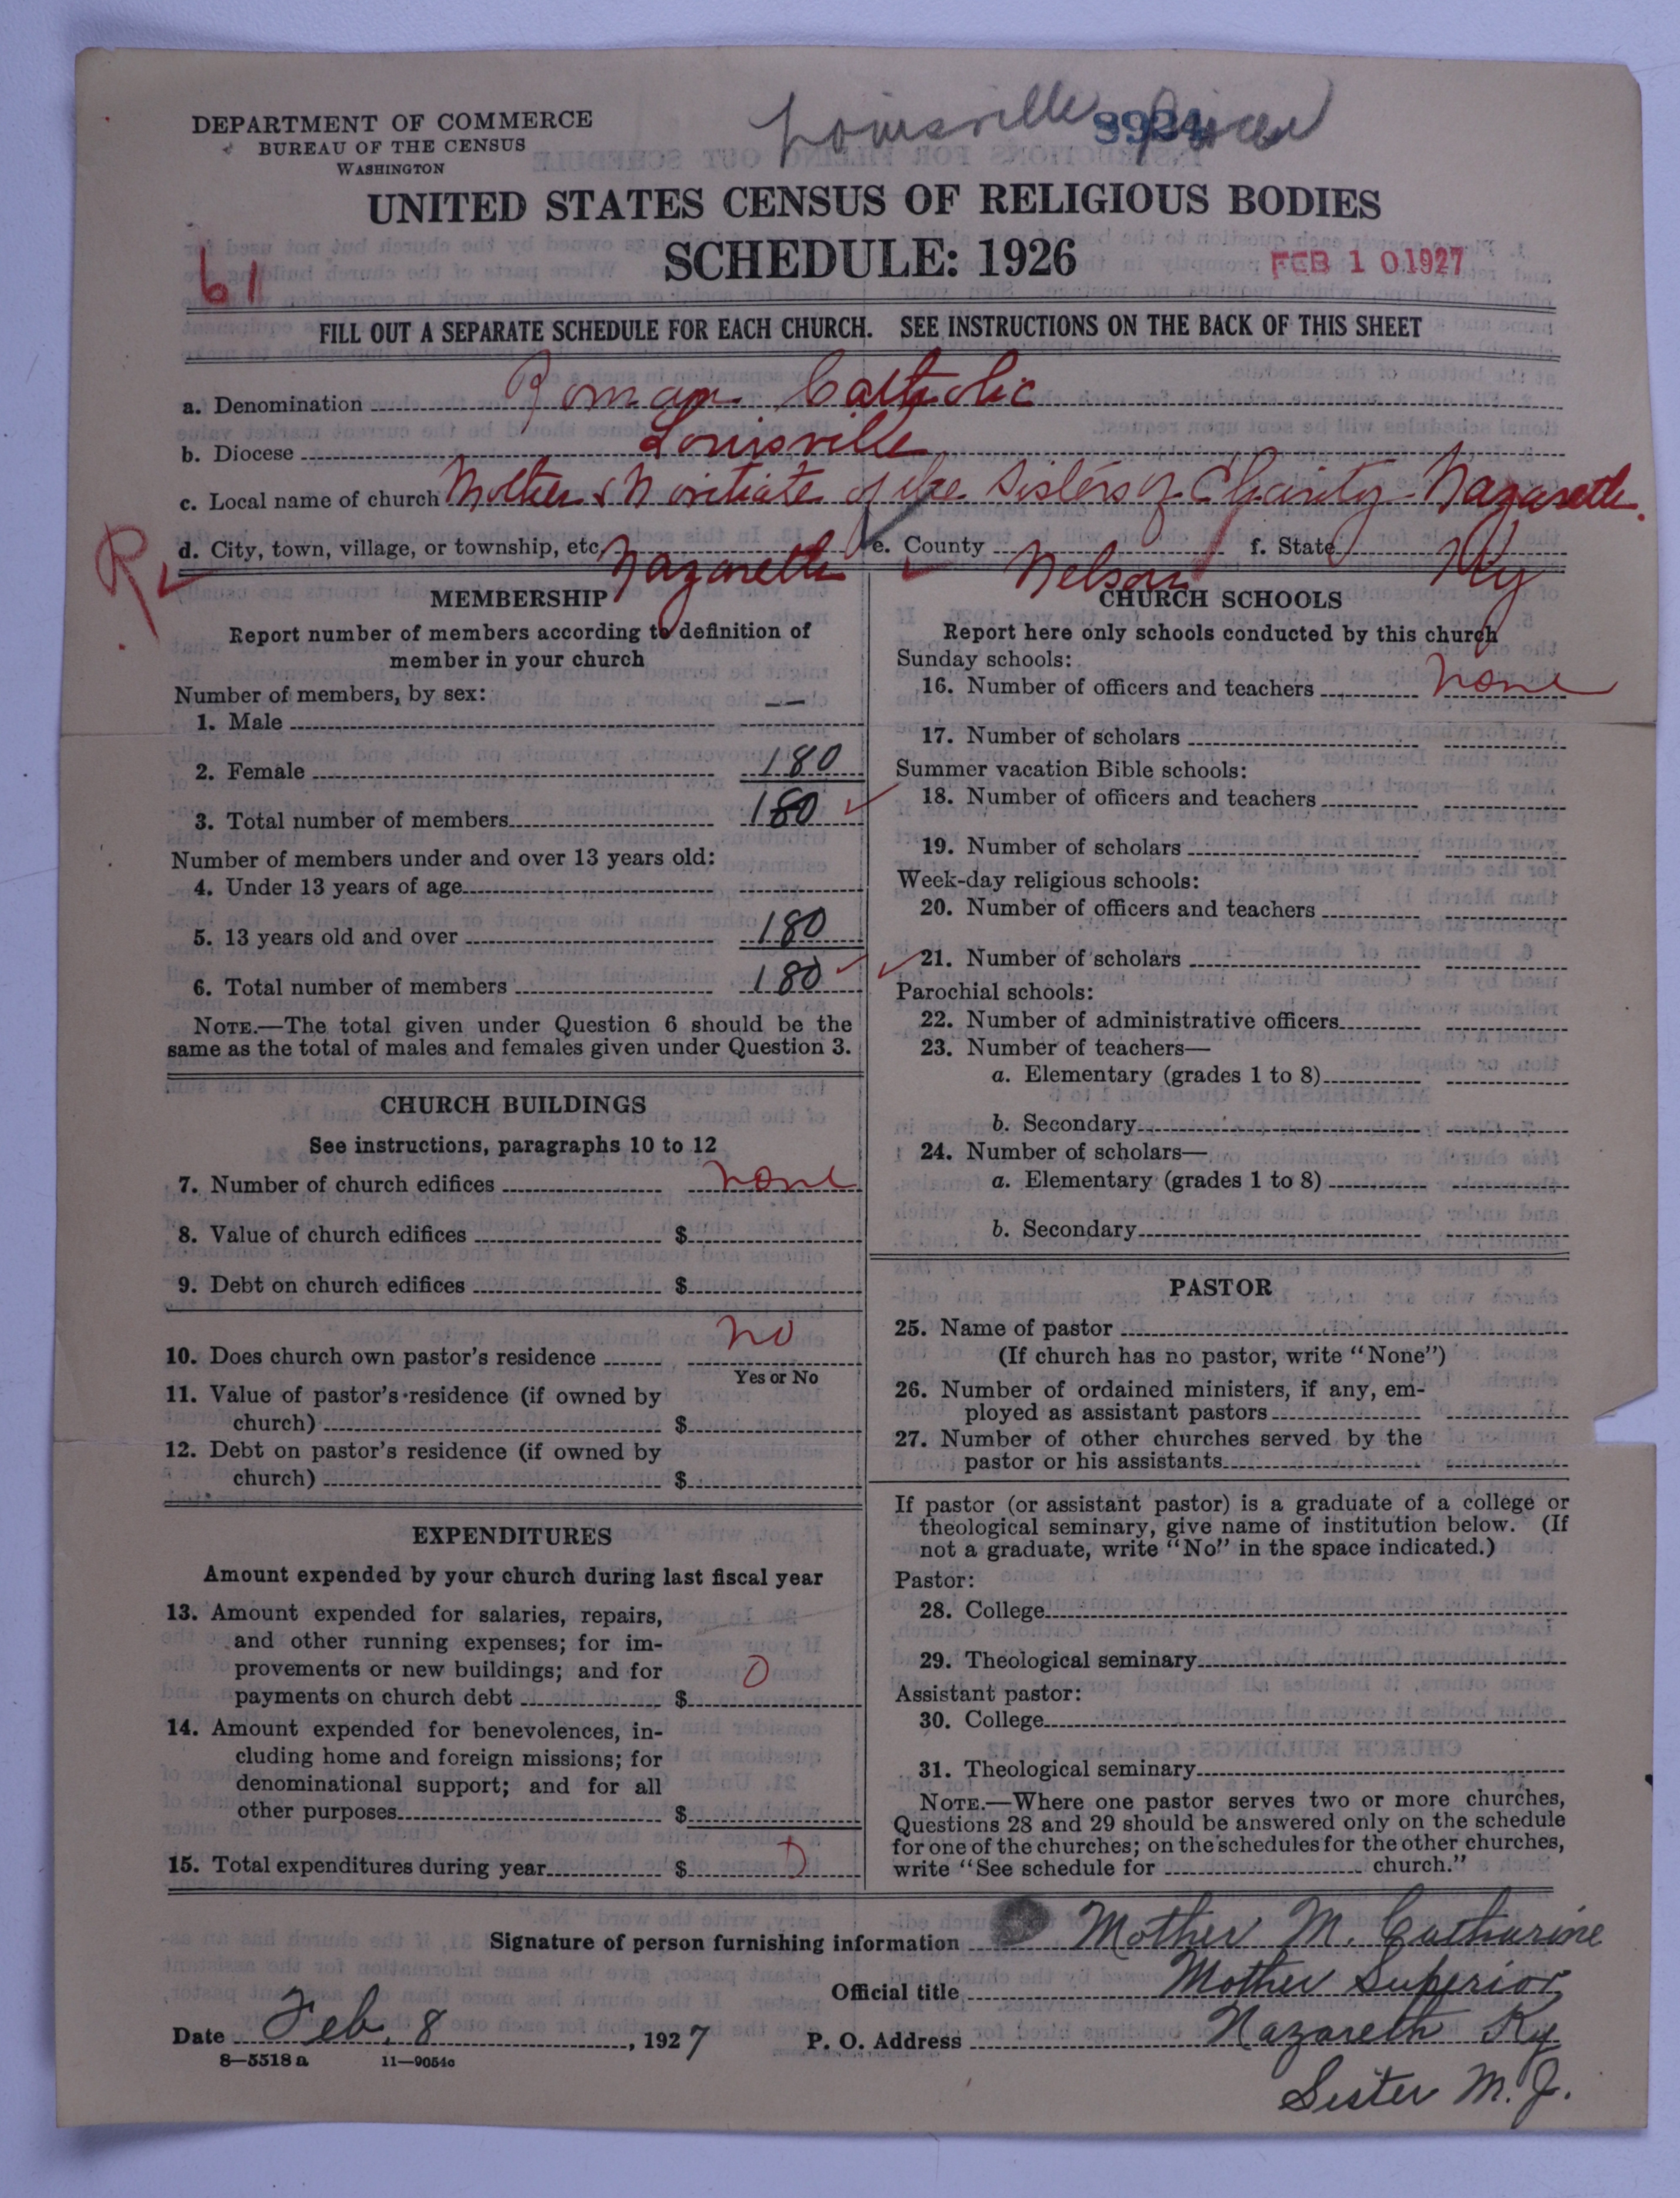 DEPARTMENT OF COMMERCE
BUREAU OF THE CENSUS
WASHINGTON
Louisville
UNITED STATES CENSUS OF RELIGIOUS BODIES
SCHEDULE: 1926
61
FEB 10 1927
FILL OUT A SEPARATE SCHEDULE FOR EACH CHURCH. SEE INSTRUCTIONS ON THE BACK OF THIS SHEET
a. Denomination Roman Catholic
b. Diocese Louisville
c. Local name of church Mother & Novitiate of the Sisters of Charity - Nazareth.
R
d. City, town, village, or township, etc. Nazareth e. County Nelson f. State Ky
MEMBERSHIP
Report number of members according to definition of
member in your church
Number of members, by sex:
1. Male —
2. Female 180
3. Total number of members 180
Number of members under and over 13 years old:
4. Under 13 years of age
5. 13 years old and over 180
6. Total number of members 180
NOTE.—The total given under Question 6 should be the
same as the total of males and females given under Question 3.
CHURCH BUILDINGS
See instructions, paragraphs 10 to 12
7. Number of church edifices none
8. Value of church edifices $
9. Debt on church edifices $
10. Does church own pastor's residence no
Yes or No
11. Value of pastor's residence (if owned by
church) $
12. Debt on pastor's residence (if owned by
church) $
EXPENDITURES
Amount expended by your church during last fiscal year
13. Amount expended for salaries, repairs,
and other running expenses; for im-
provements or new buildings; and for
payments on church debt $ 0
14. Amount expended for benevolences, in-
cluding home and foreign missions; for
denominational support; and for all
other purposes $
15. Total expenditures during year $ 0
CHURCH SCHOOLS
Report here only schools conducted by this church
Sunday schools:
16. Number of officers and teachers none
17. Number of scholars
Summer vacation Bible schools:
18. Number of officers and teachers
19. Number of scholars
Week-day religious schools:
20. Number of officers and teachers
21. Number of scholars
Parochial schools:
22. Number of administrative officers
23. Number of teachers—
a. Elementary (grades 1 to 8)
b. Secondary
24. Number of scholars—
a. Elementary (grades 1 to 8)
b. Secondary
PASTOR
25. Name of pastor
(If church has no pastor, write "None")
26. Number of ordained ministers, if any, em-
ployed as assistant pastors
27. Number of other churches served by the
pastor or his assistants
If pastor (or assistant pastor) is a graduate of a college or
theological seminary, give name of institution below. (If
not a graduate, write "No" in the space indicated.)
Pastor:
28. College
29. Theological seminary
Assistant pastor:
30. College
31. Theological seminary
NOTE.—Where one pastor serves two or more churches,
Questions 28 and 29 should be answered only on the schedule
for one of the churches; on the schedules for the other churches,
write "See schedule for church."
Signature of person furnishing information Mother M. Catharine
Official title Mother Superior
Date Feb. 8, 1927 P. O. Address Nazareth Ky
8—5518 a 11—9054c
Sister M. J.